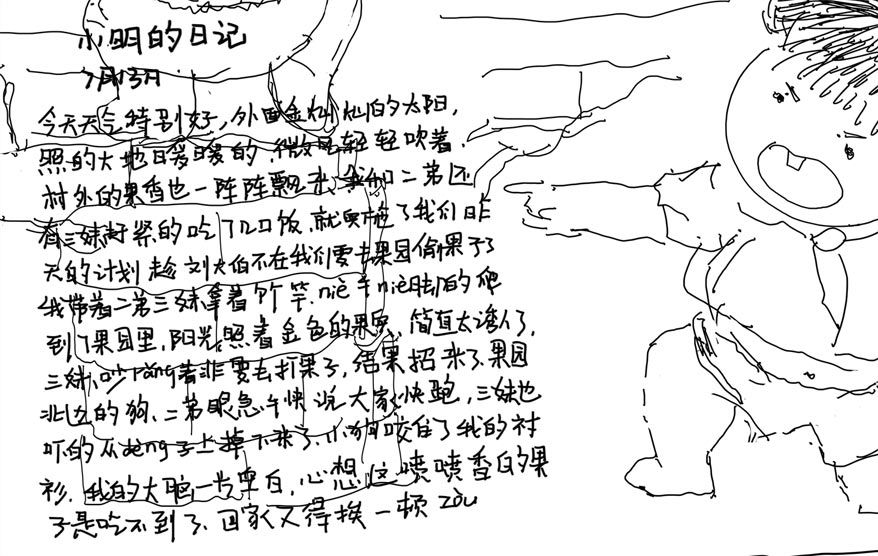 小明的日记
7月13日
今天天气特别好，外面金灿灿的太阳，
照的大地日暖日暖的，微风轻轻吹着，
村外的果香也一阵阵飘来，我和二弟还
有三妹赶紧的吃了几口饭，就实施了我们昨
天的计划 趁刘大伯不在我们要去果园偷果子了
我带着二弟三妹拿着竹竿，niè手niè脚的爬
到了果园里，阳光照着金色的果实，简直太诱人了，
三妹吵rǎng着非要去打果子，结果招来了果园
北边的狗，二弟眼急手快说大家快跑，三妹也
吓的从deng子上掉下来了，小狗咬住了我的衬
衫，我的大脑一片空白，心想这喷喷香的果
子是吃不到了，回家又得挨一顿zòu